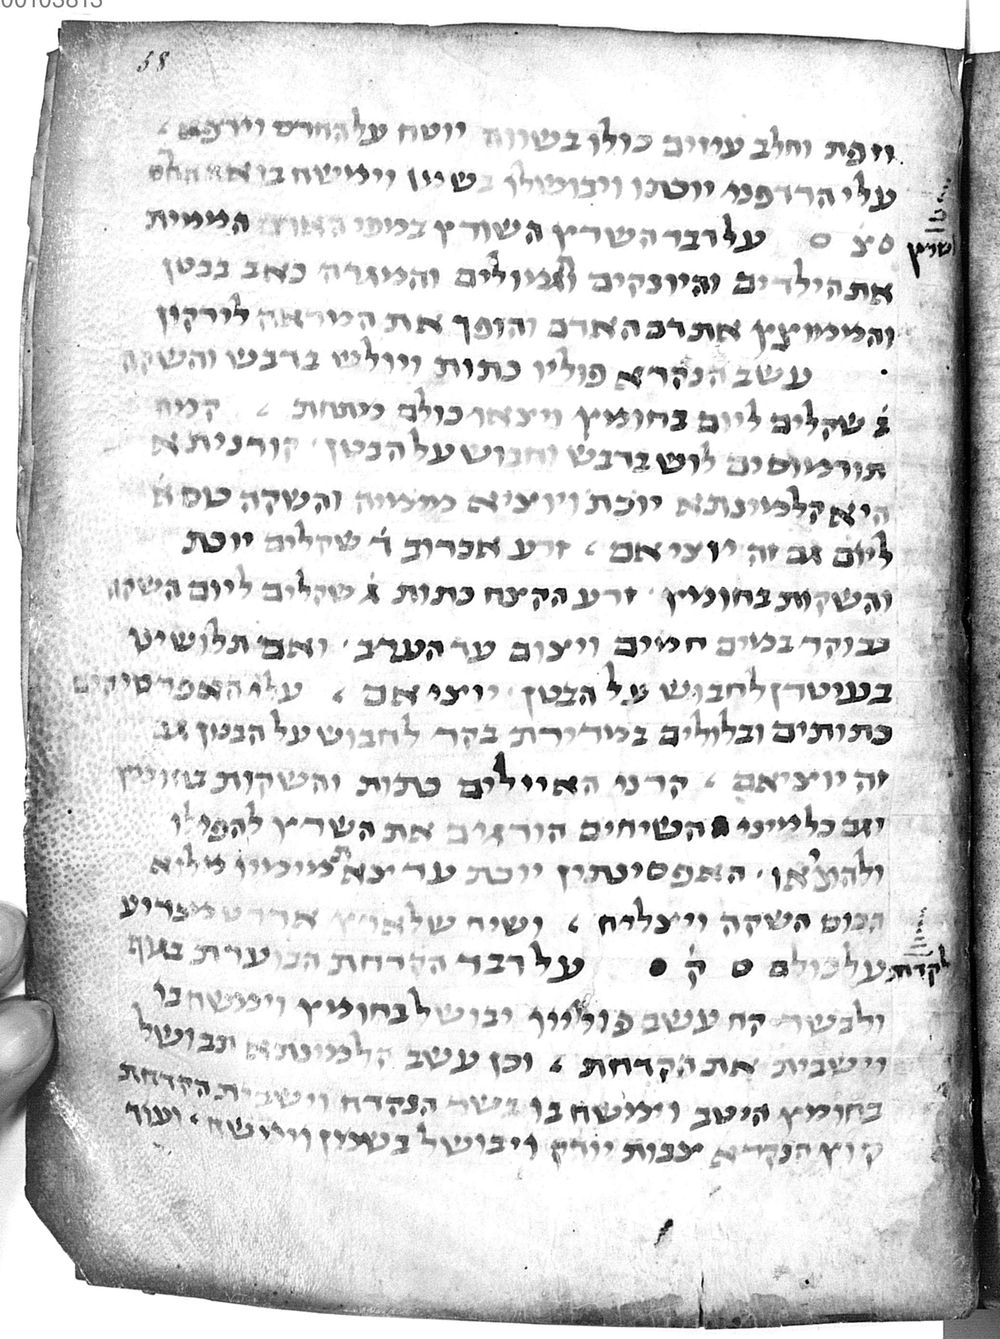 00105813
58
וזפת וחלב עיזים כולן בשווה יוטח על החרס וירפא
עלי הרדפני יוכתו ויבושלו בשמן וימשח בו
צ֗ על דבר השרץ השורץ במעי האדם הממית
השרץ
את הילדים והיונקים וגמולים והמגרה כאב בבטן
והממוצץ את דם האדם והופך את המראה לירקון
עשב הנקרא פוליו כתות ויולש בדבש והשקה
ב֗ שקלים ליום בחומיץ ויצאו כולם מתחת קמח
תורמוסים לוש בדבש וחבוש על הבטן קורנית א
היא קלמינתא יוכת ויוציא מימיה והשקה כוס א֗
ליום גם זה יוציאם זרע אכרוב ד֗ שקלים יוכת
והשקות בחומיץ זרע הקצח כתות ג֗ שקלים ליום השקה
בבוקר במים חמים ויצום עד הערב ואם תלושינו
בעיטרן לחבוש על הבטן יוציאם עלי האפרסיקים
כתותים ובלולים במרירת בקר לחבוש על הבטן גם
זה יוציאם קרני האיילים כתות והשקות בחומיץ
וגם כל מיני השיחים הורגים את השרץ להפילו
ולהוציאו האפסינתין יוכת עד יצא מימיו מלוא
הכוס השקה ויצליח ושיח של
על כולם ק֗ על דבר הקדחת הבוערת בגוף
לקדחת
ולבשר קח עשב פוליון ובושל בחומיץ וימשח בו
וישבית את הקדחת וכן עשב קלמינתא תבושל
בחומיץ היטב וימשח בו בשר הנקדח וישבית הקדחת
קוץ הנקרא יבושל בשמן וימשח ועוד